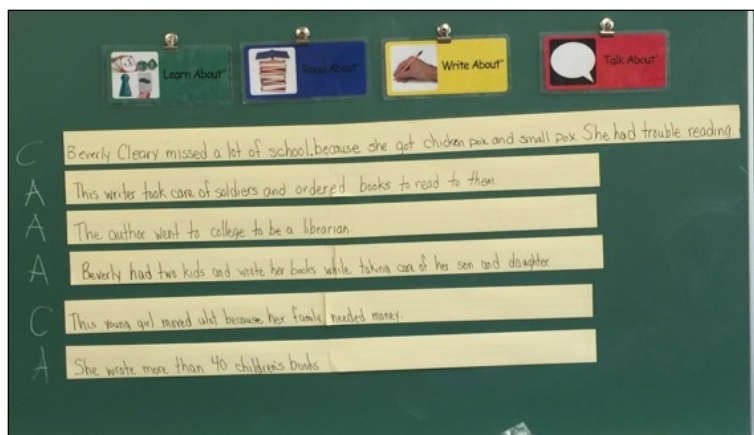 Learn About™
Read About™
Write About™
Talk About™
C Beverly Cleary missed a lot of school. because she got chicken pox and small pox She had trouble reading.
A This writer took care of soldiers and ordered books to read to them.
A The author went to college to be a librarian.
A Beverly had two kids and wrote her books while taking care of her son and daughter
C This young girl moved alot because her family needed money.
A She wrote more than 40 children's books